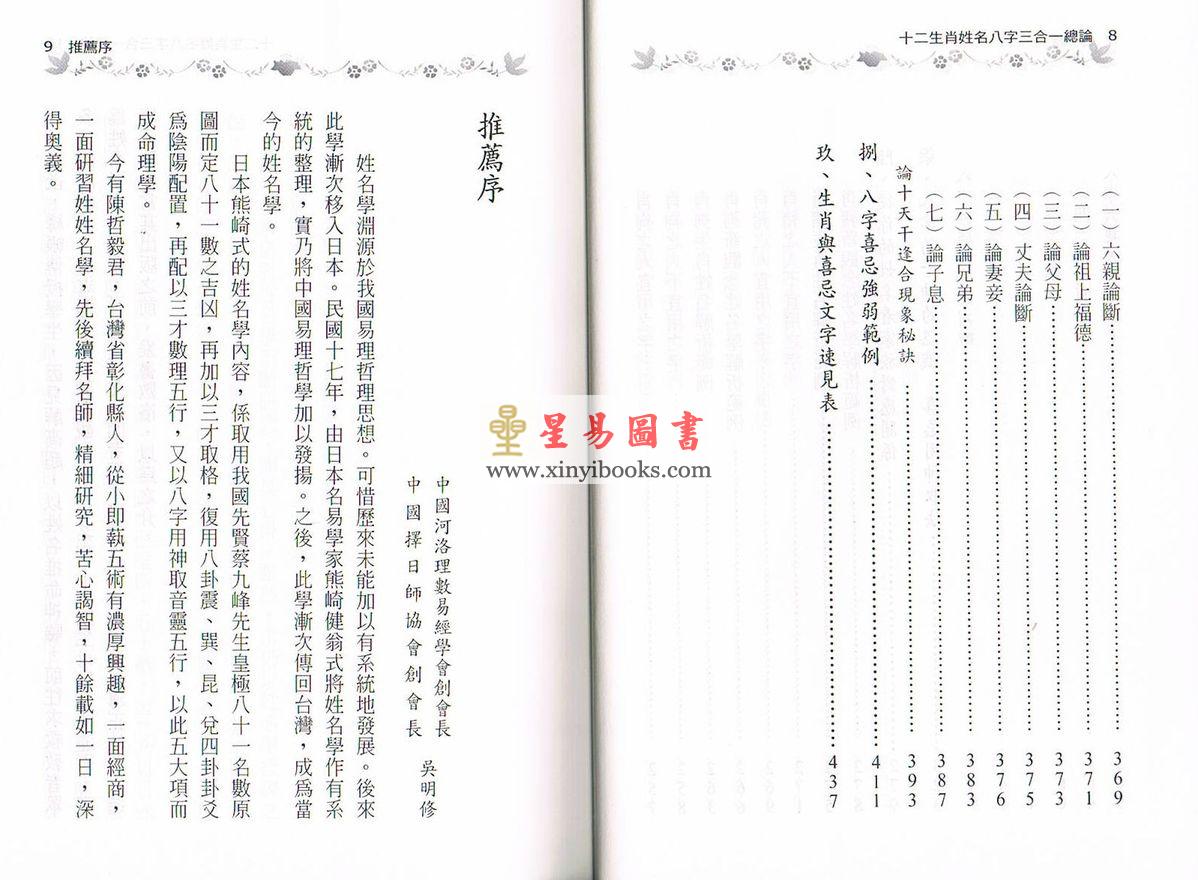 十二生肖姓名八字三合一總論 8
(一)六親論斷……369
(二)論祖上福德……371
(三)論父母……373
(四)丈夫論斷……375
(五)論妻妾……376
(六)論兄弟……383
(七)論子息……387
論十天干逢合現象秘訣……393
捌、八字喜忌強弱範例……411
玖、生肖與喜忌文字速見表……437
9 推薦序
推薦序
中國河洛理數易經學會創會長
中國擇日師協會創會長
吳明修
姓名學淵源於我國易理哲理思想。可惜歷來未能加以有系統地發展。後來
此學漸次移入日本。民國十七年,由日本名易學家熊崎健翁式將姓名學作有系
統的整理,實乃將中國易理哲學加以發揚。之後,此學漸次傳回台灣,成為當
今的姓名學。
日本熊崎式的姓名學內容,係取用我國先賢蔡九峰先生皇極八十一名數原
圖而定八十一數之吉凶,再加以三才取格,復用八卦震、巽、昆、兌四卦卦爻
爲陰陽配置,再配以三才數理五行,又以八字用神取音靈五行,以此五大項而
成命理學。
今有陳哲毅君,台灣省彰化縣人,從小即執五術有濃厚興趣,一面經商,
一面研習姓姓名學,先後續拜名師,精細研究,苦心謁智,十餘載如一日,深
得奧義。
星易圖書
www.xinyibooks.com